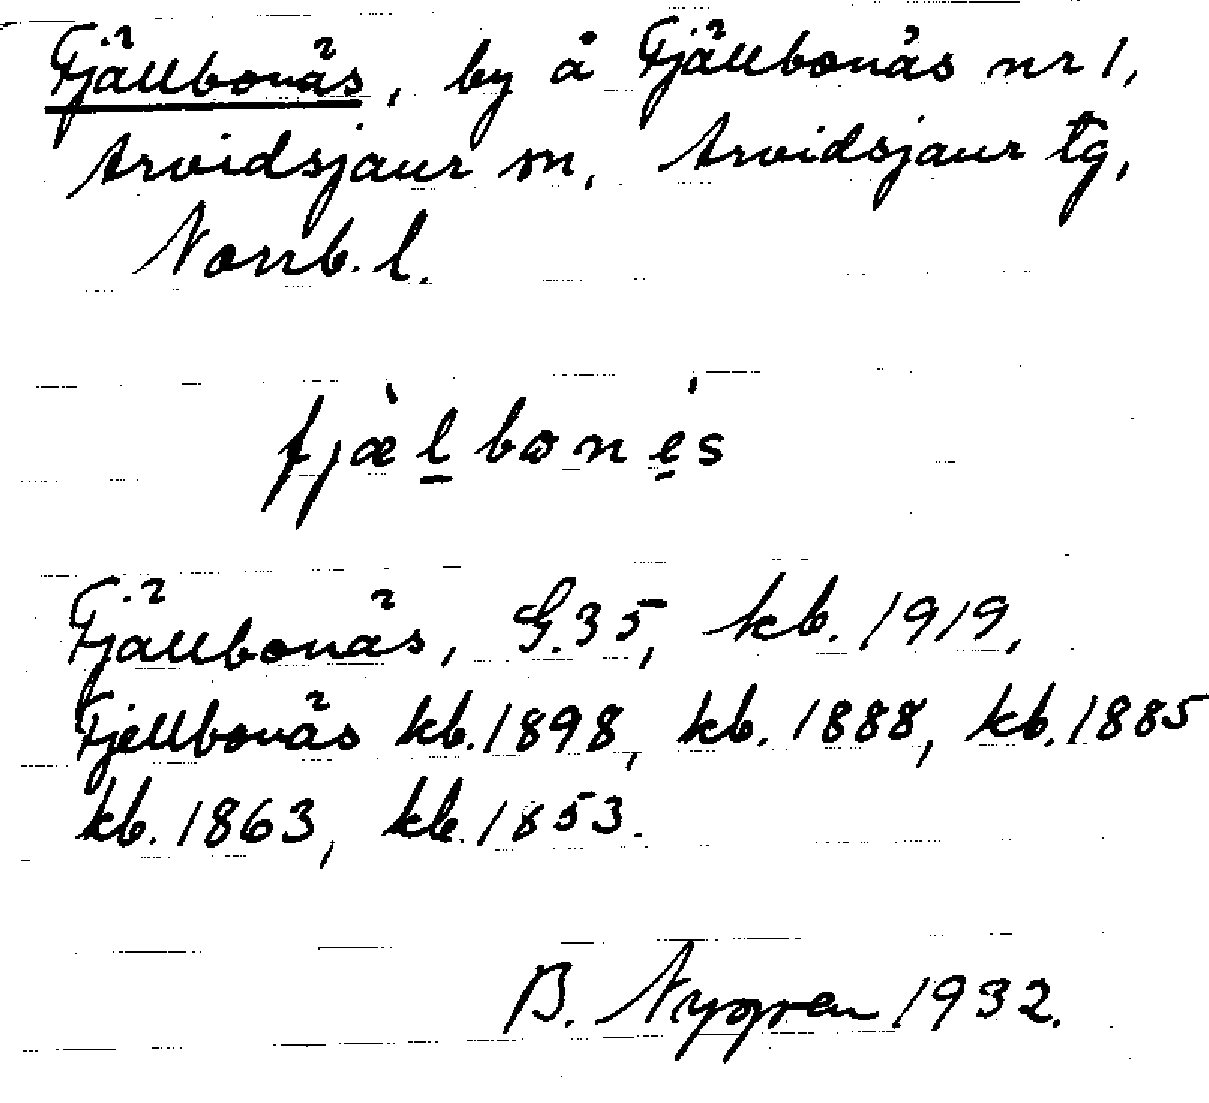 Fjällbonäs, by å Fjällbonäs nr 1,
Arvidsjaur sn, Arvidsjaur tg,
Norrb. l.
fjæ̀l̲bωné̲s
Fjällbonäs, G.35, kb. 1919,
Fjellbonäs kb. 1898, kb. 1888, kb. 1885
kb. 1863, kb. 1853.
B. Nygren 1932.